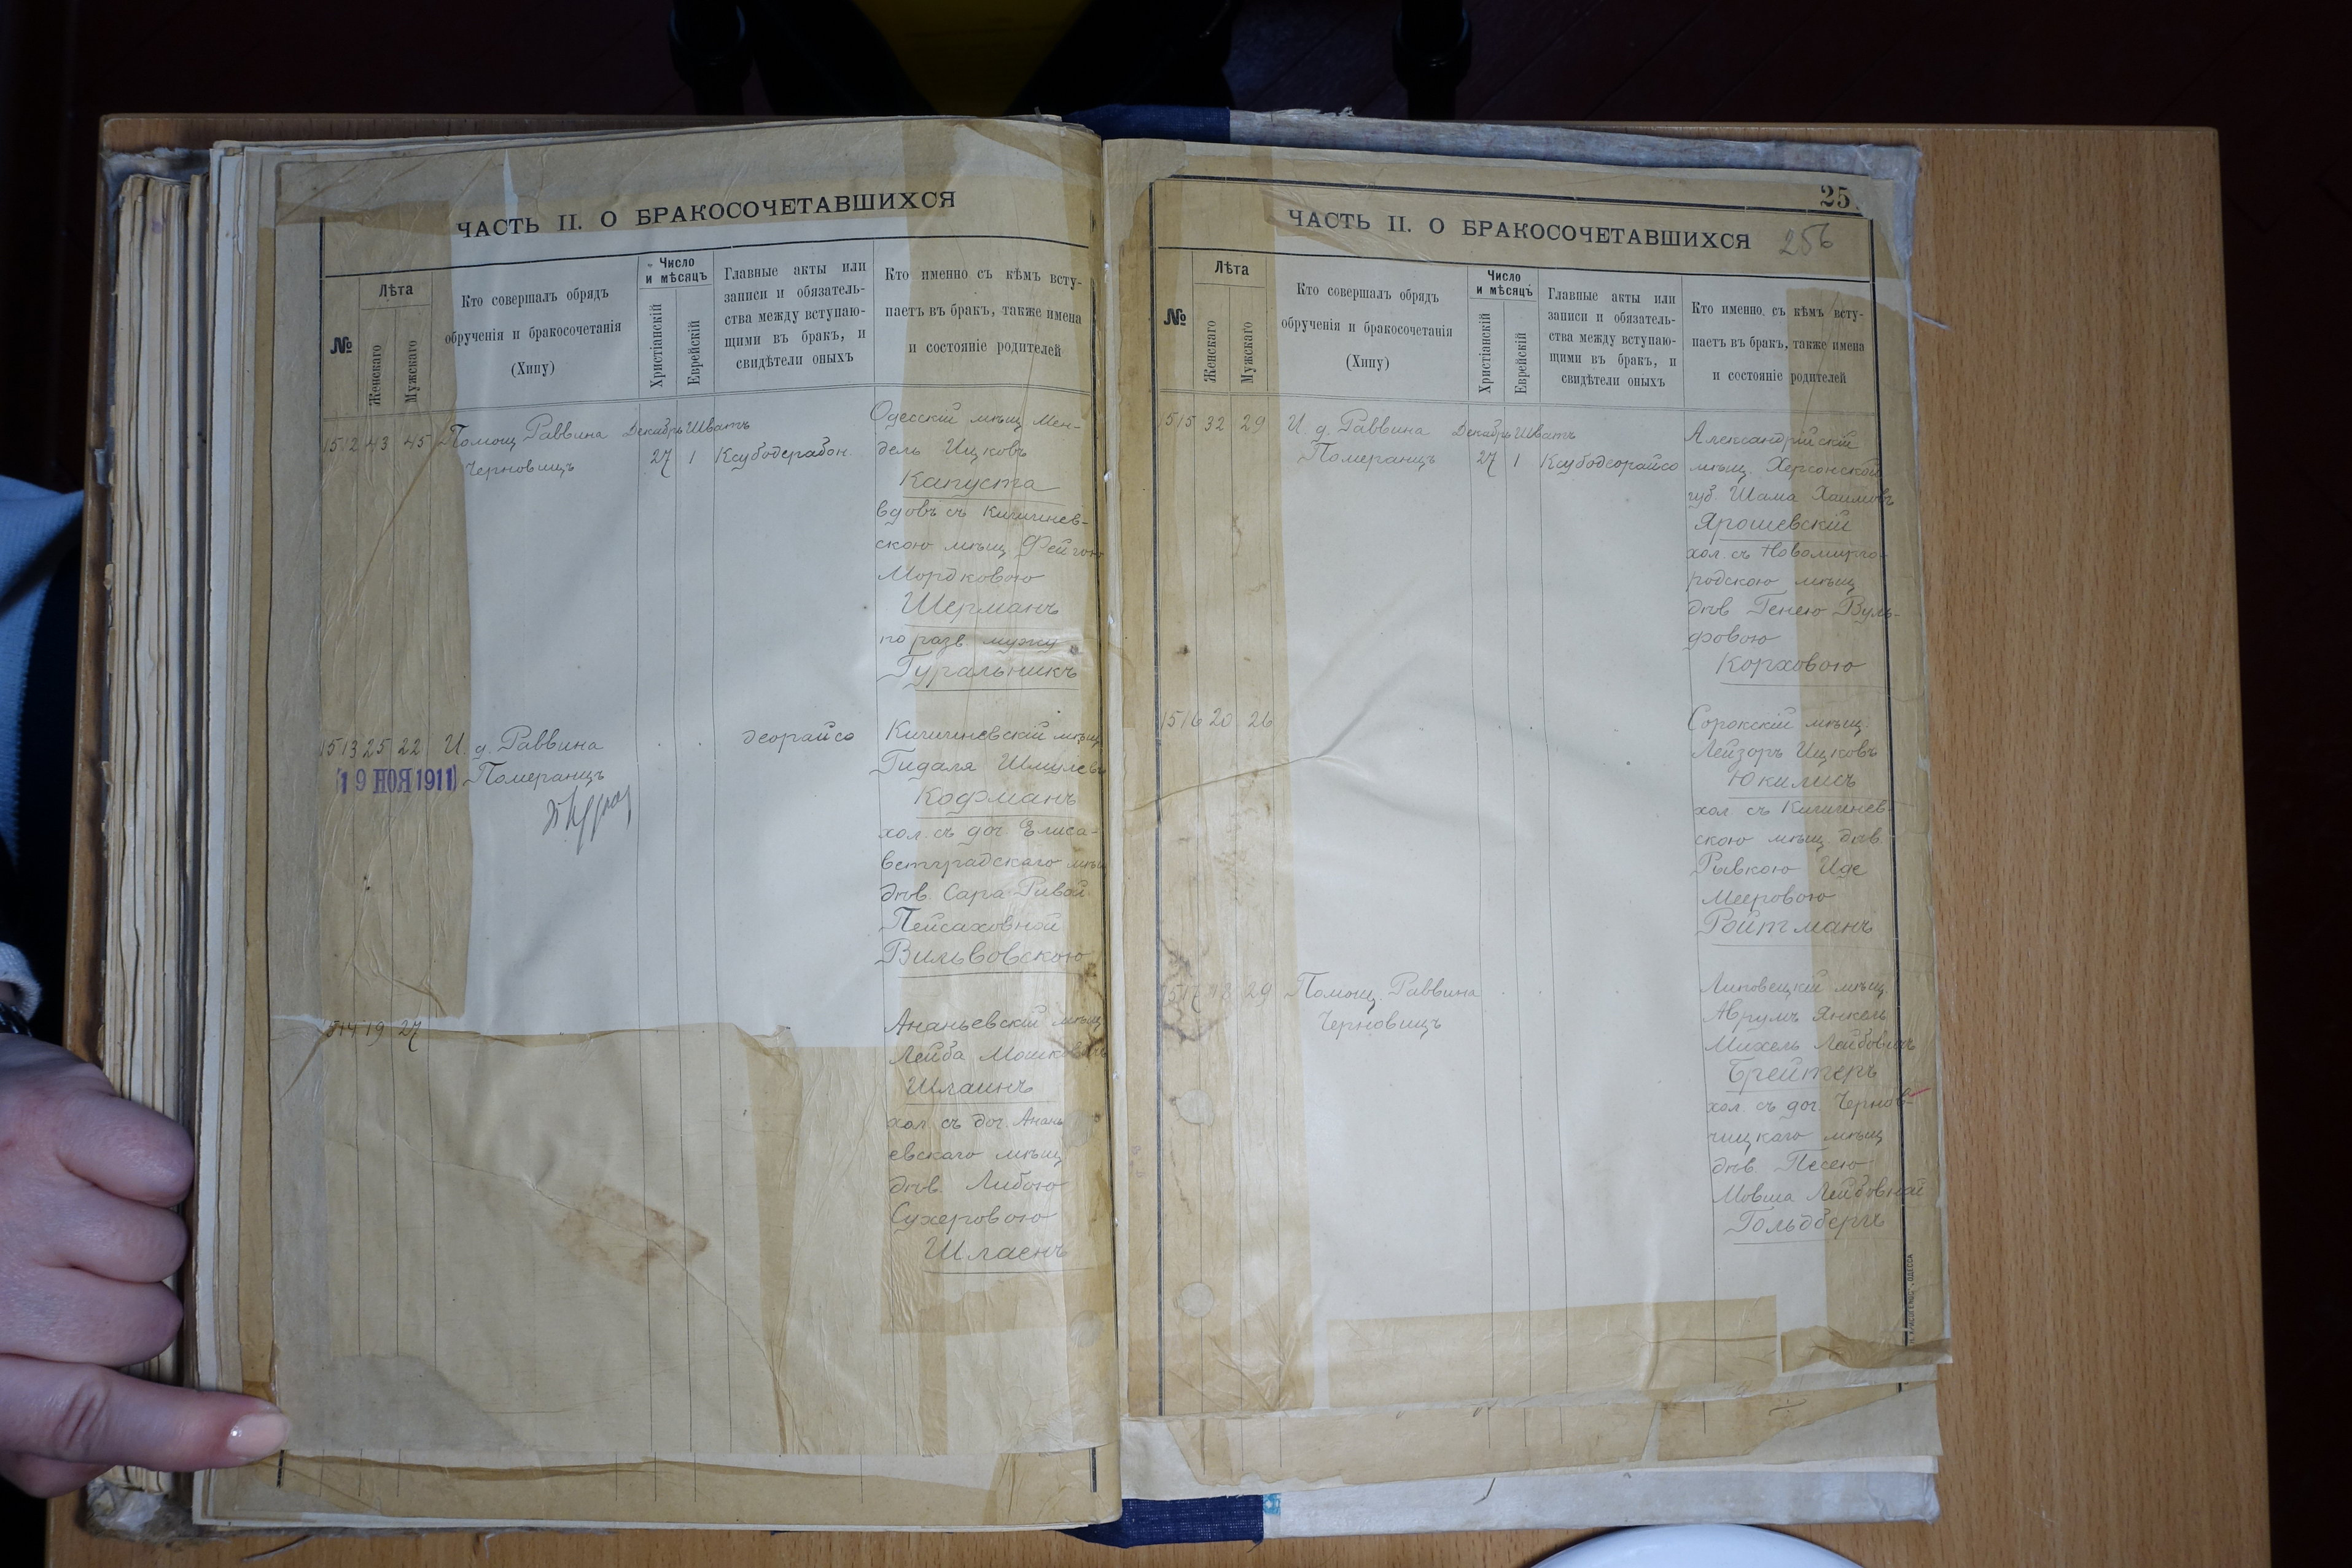 ЧАСТЬ II. О БРАКОСОЧЕТАВШИХСЯ
№
Лѣта
Женскаго
Мужскаго
Кто совершалъ обрядъ
обрученія и бракосочетанія
(Хипу)
Число
и мѣсяцъ
Христіанскій
Еврейскій
Главные акты или
записи и обязатель-
ства между вступаю-
щими въ бракъ, и
свидѣтели оныхъ
Кто именно съ кѣмъ всту-
паетъ въ бракъ, также имена
и состояніе родителей
1512 43 45 Помощ Раввина Декабрь Шватъ
Черновицъ 27 1 Ксубодерабон.
Одесскій мѣщ Мен-
дель Ицковъ
Капуста
вдовъ съ Кишинев-
скою мѣщ Фейгою
Мордковою
Шерманъ
по разв. мужу
Гуральникъ
1513 25 22 И. д. Раввина деорайсо
19 НОЯ 1911 Померанцъ
Кишиневскій мѣщ
Гидаля Шмулевъ
Кофманъ
хол. съ доч. Елиса-
ветградскаго мѣщ
дѣв. Сара Ривой
Пейсаховной
Вильвовскою
1514 19 27
Ананьевскій мѣщ
Лейба Мошковичъ
Шлаинъ
хол. съ доч. Анань
евскаго мѣщ
дѣв. Либою
Сухеровою
Шлаенъ
25
ЧАСТЬ II. О БРАКОСОЧЕТАВШИХСЯ 256
№
Лѣта
Женскаго
Мужскаго
Кто совершалъ обрядъ
обрученія и бракосочетанія
(Хипу)
Число
и мѣсяцъ
Христіанскій
Еврейскій
Главные акты или
записи и обязатель-
ства между вступаю-
щими въ бракъ, и
свидѣтели оныхъ
Кто именно, съ кѣмъ всту-
паетъ въ бракъ, также имена
и состояніе родителей
1515 32 29 И. д. Раввина Декабрь Шватъ
Померанцъ 27 1 Ксубодеорайсо
Александрійскій
мѣщ. Херсонской
губ. Шама Хаимовъ
Ярошевскій
хол. съ Новомирго-
родскою мѣщ
дѣв Генею Вуль-
фовою
Корховою
1516 20 26
Сорокскій мѣщ.
Лейзоръ Ицковъ
Юкилисъ
хол съ Кишинев-
скою мѣщ дѣв.
Рывкою Иде
Мееровою
Ройтманъ
1517 29 Помощ. Раввина
Черновицъ
Липовецкій мѣщ.
Аврумъ Янкель
Михель Лейбовичъ
Брейтеръ
хол. съ доч. Чернов-
чицкаго мѣщ
дѣв. Песею
Мовша Лейбовной
Гольдбергъ